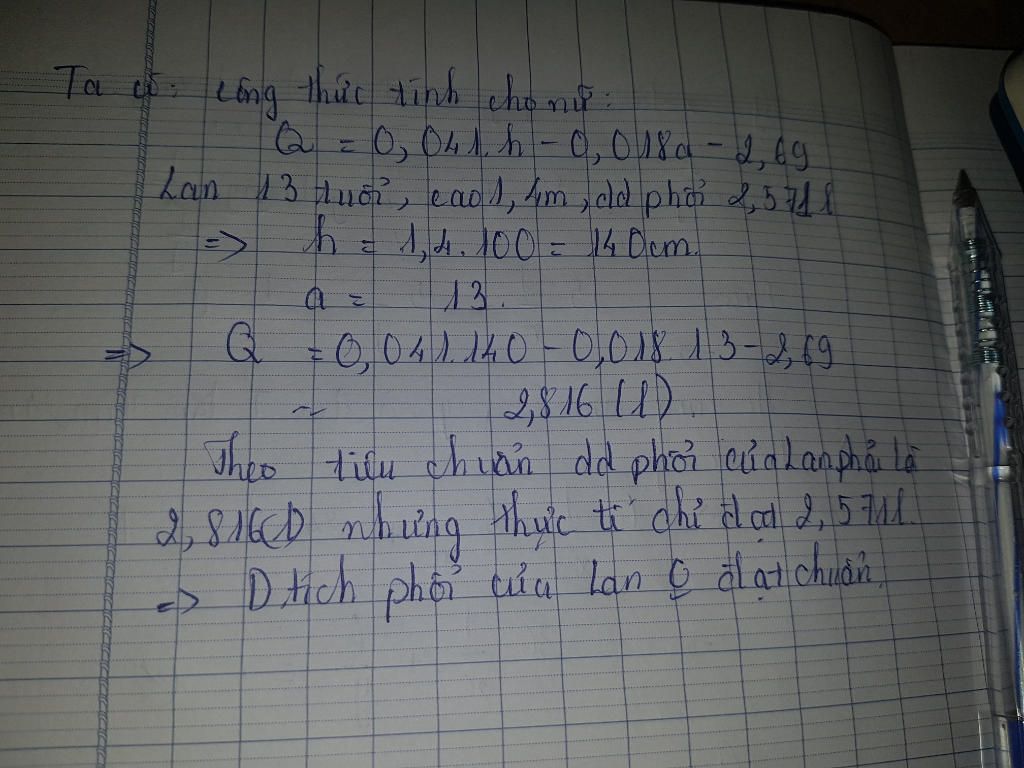 Ta có: công thức tính cho nữ:
Q = 0,041.h - 0,018a - 2,69
Lan 13 tuổi, cao 1,4m, dd phổi 2,571l
=> h = 1,4.100 = 140cm.
a = 13.
=> Q = 0,041.140 - 0,018.13 - 2,69
~ 2,816 (l).
Theo tiêu chuẩn dd phổi của Lan phải là
2,816(l) nhưng thực tế chỉ đạt 2,571l.
=> D.tích phổi của Lan đạt chuẩn.